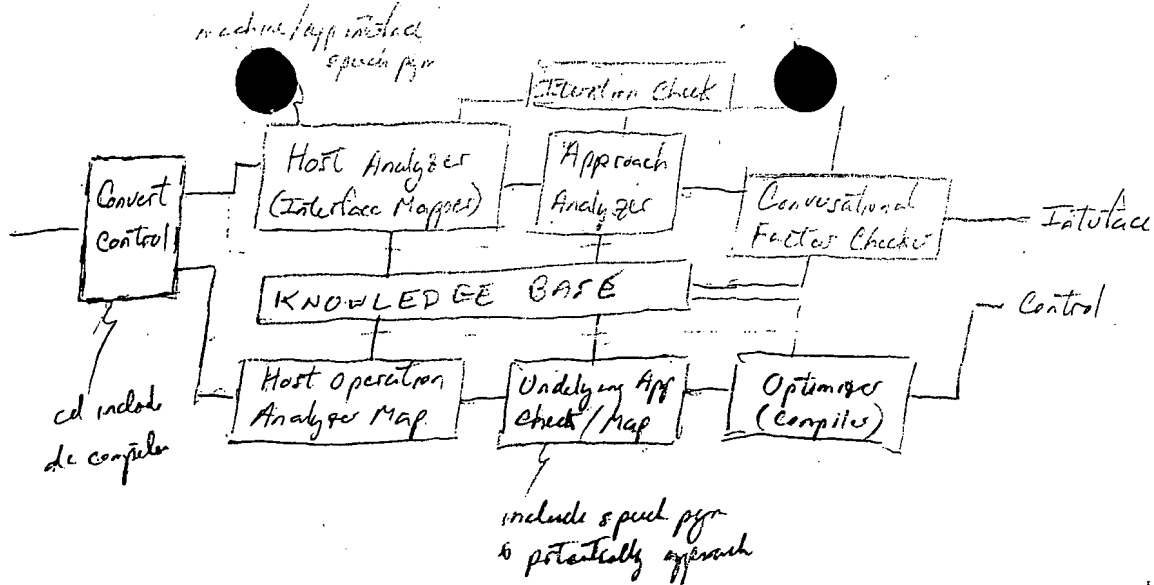 machine/app interface
speech pgm
Iteration Check
Host Analyzer
(Interface Mapper)
Approach
Analyzer
Convert
Control
Conversational
Factors Checker
Interface
KNOWLEDGE BASE
Control
Host Operation
Analyzer Map
Underlying App
Check/Map
Optimizer
(Compiler)
cd include
de compiler
include speech pgm
& potentially approach